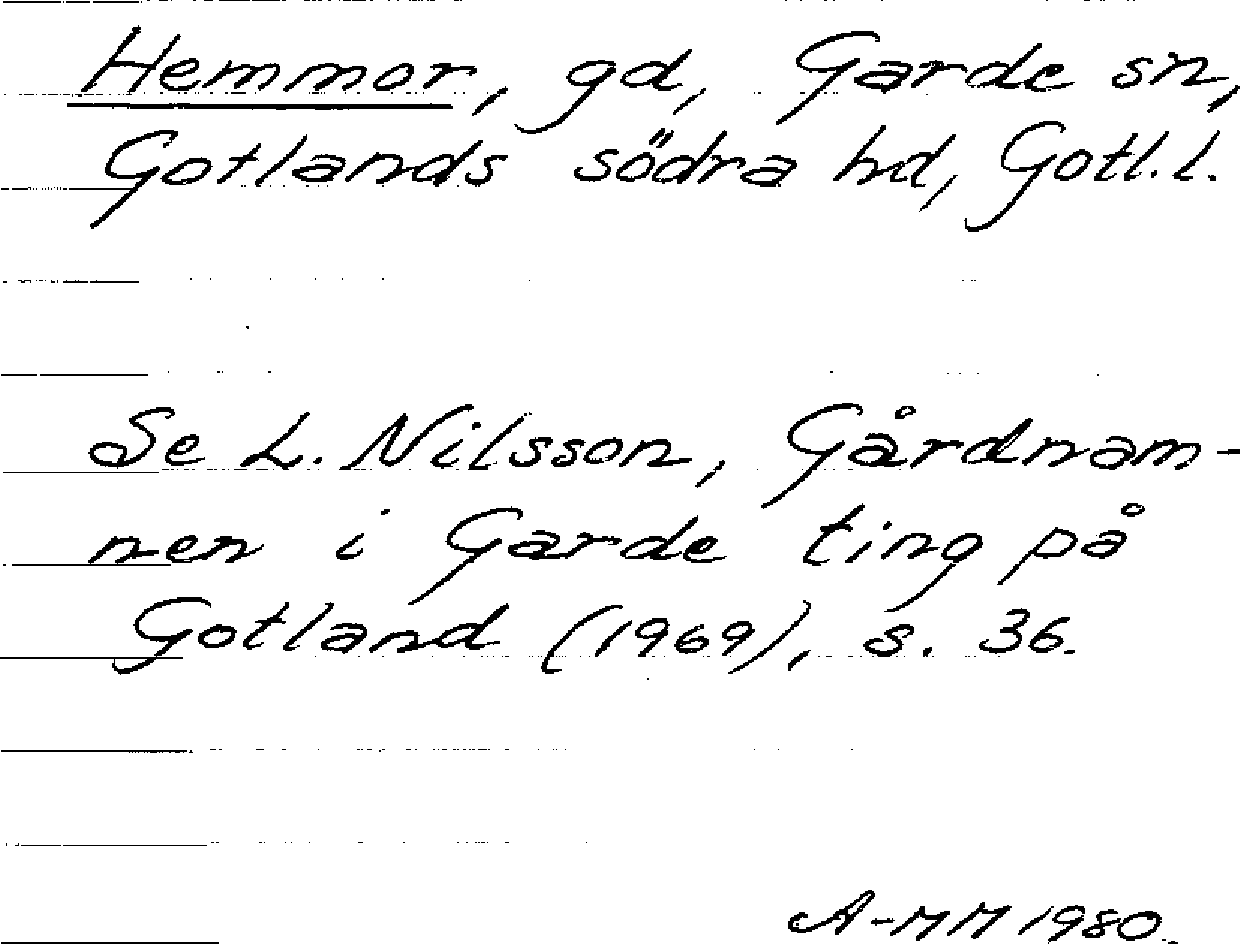 Hemmor, gd, Garde sn,
Gotlands södra hd, Gotl.l.
Se L. Nilsson, Gårdnam-
nen i Garde ting på
Gotland (1969), s. 36.
A-MM 1980.